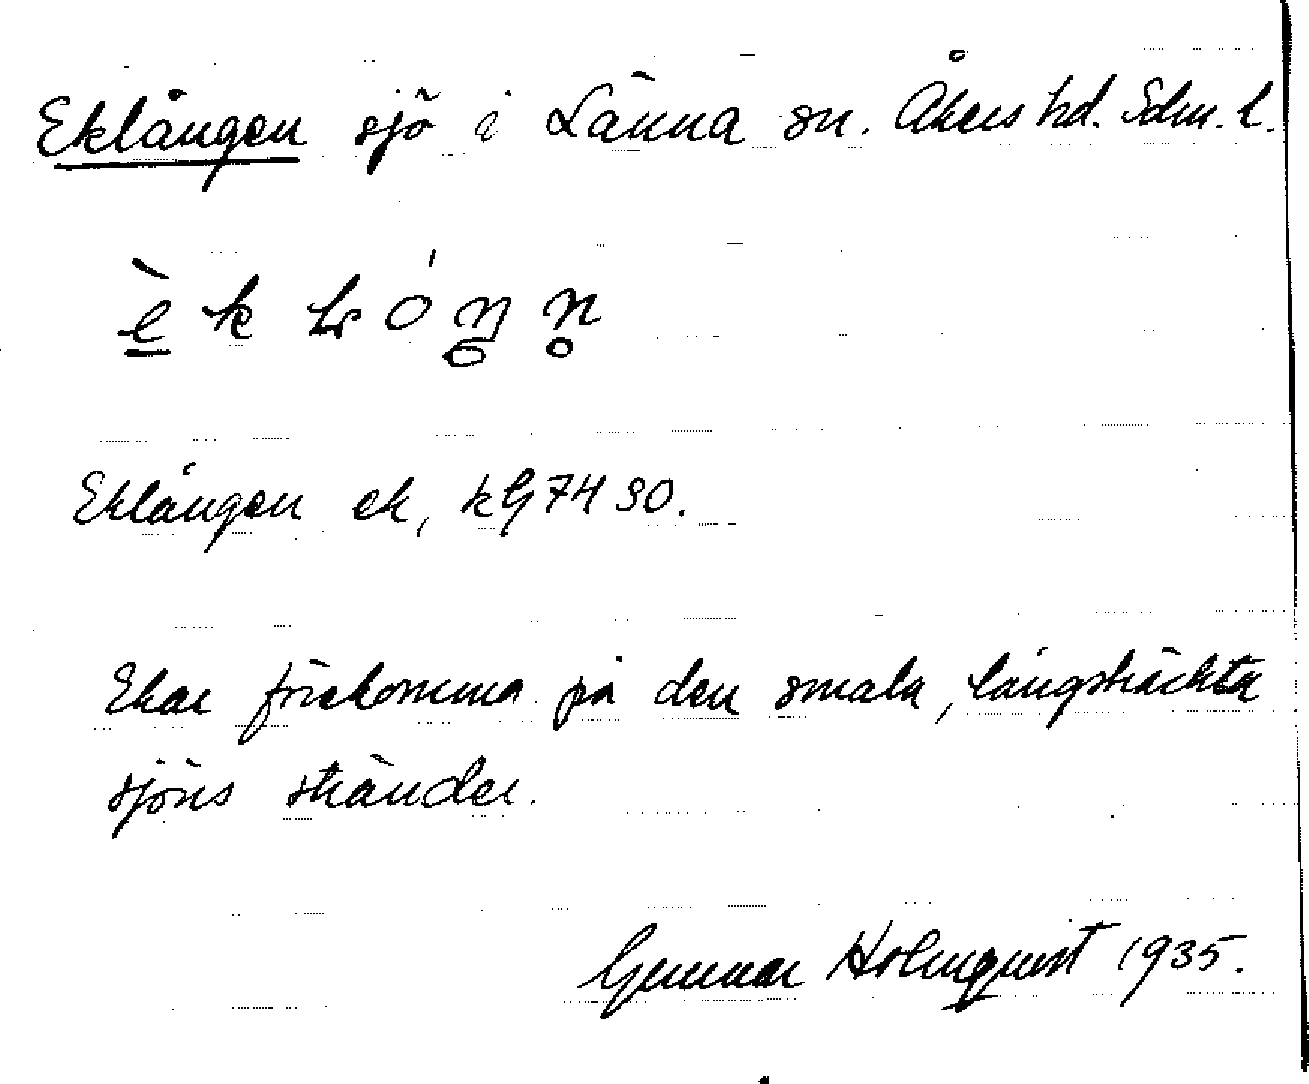 Eklången sjö i Länna sn. Åkers hd. Sdm. l.
Eklången ek, kG 74 30.
Ekar förekomma på den smala, långsträckta
sjöns stränder.
Gunnar Holmquist 1935.